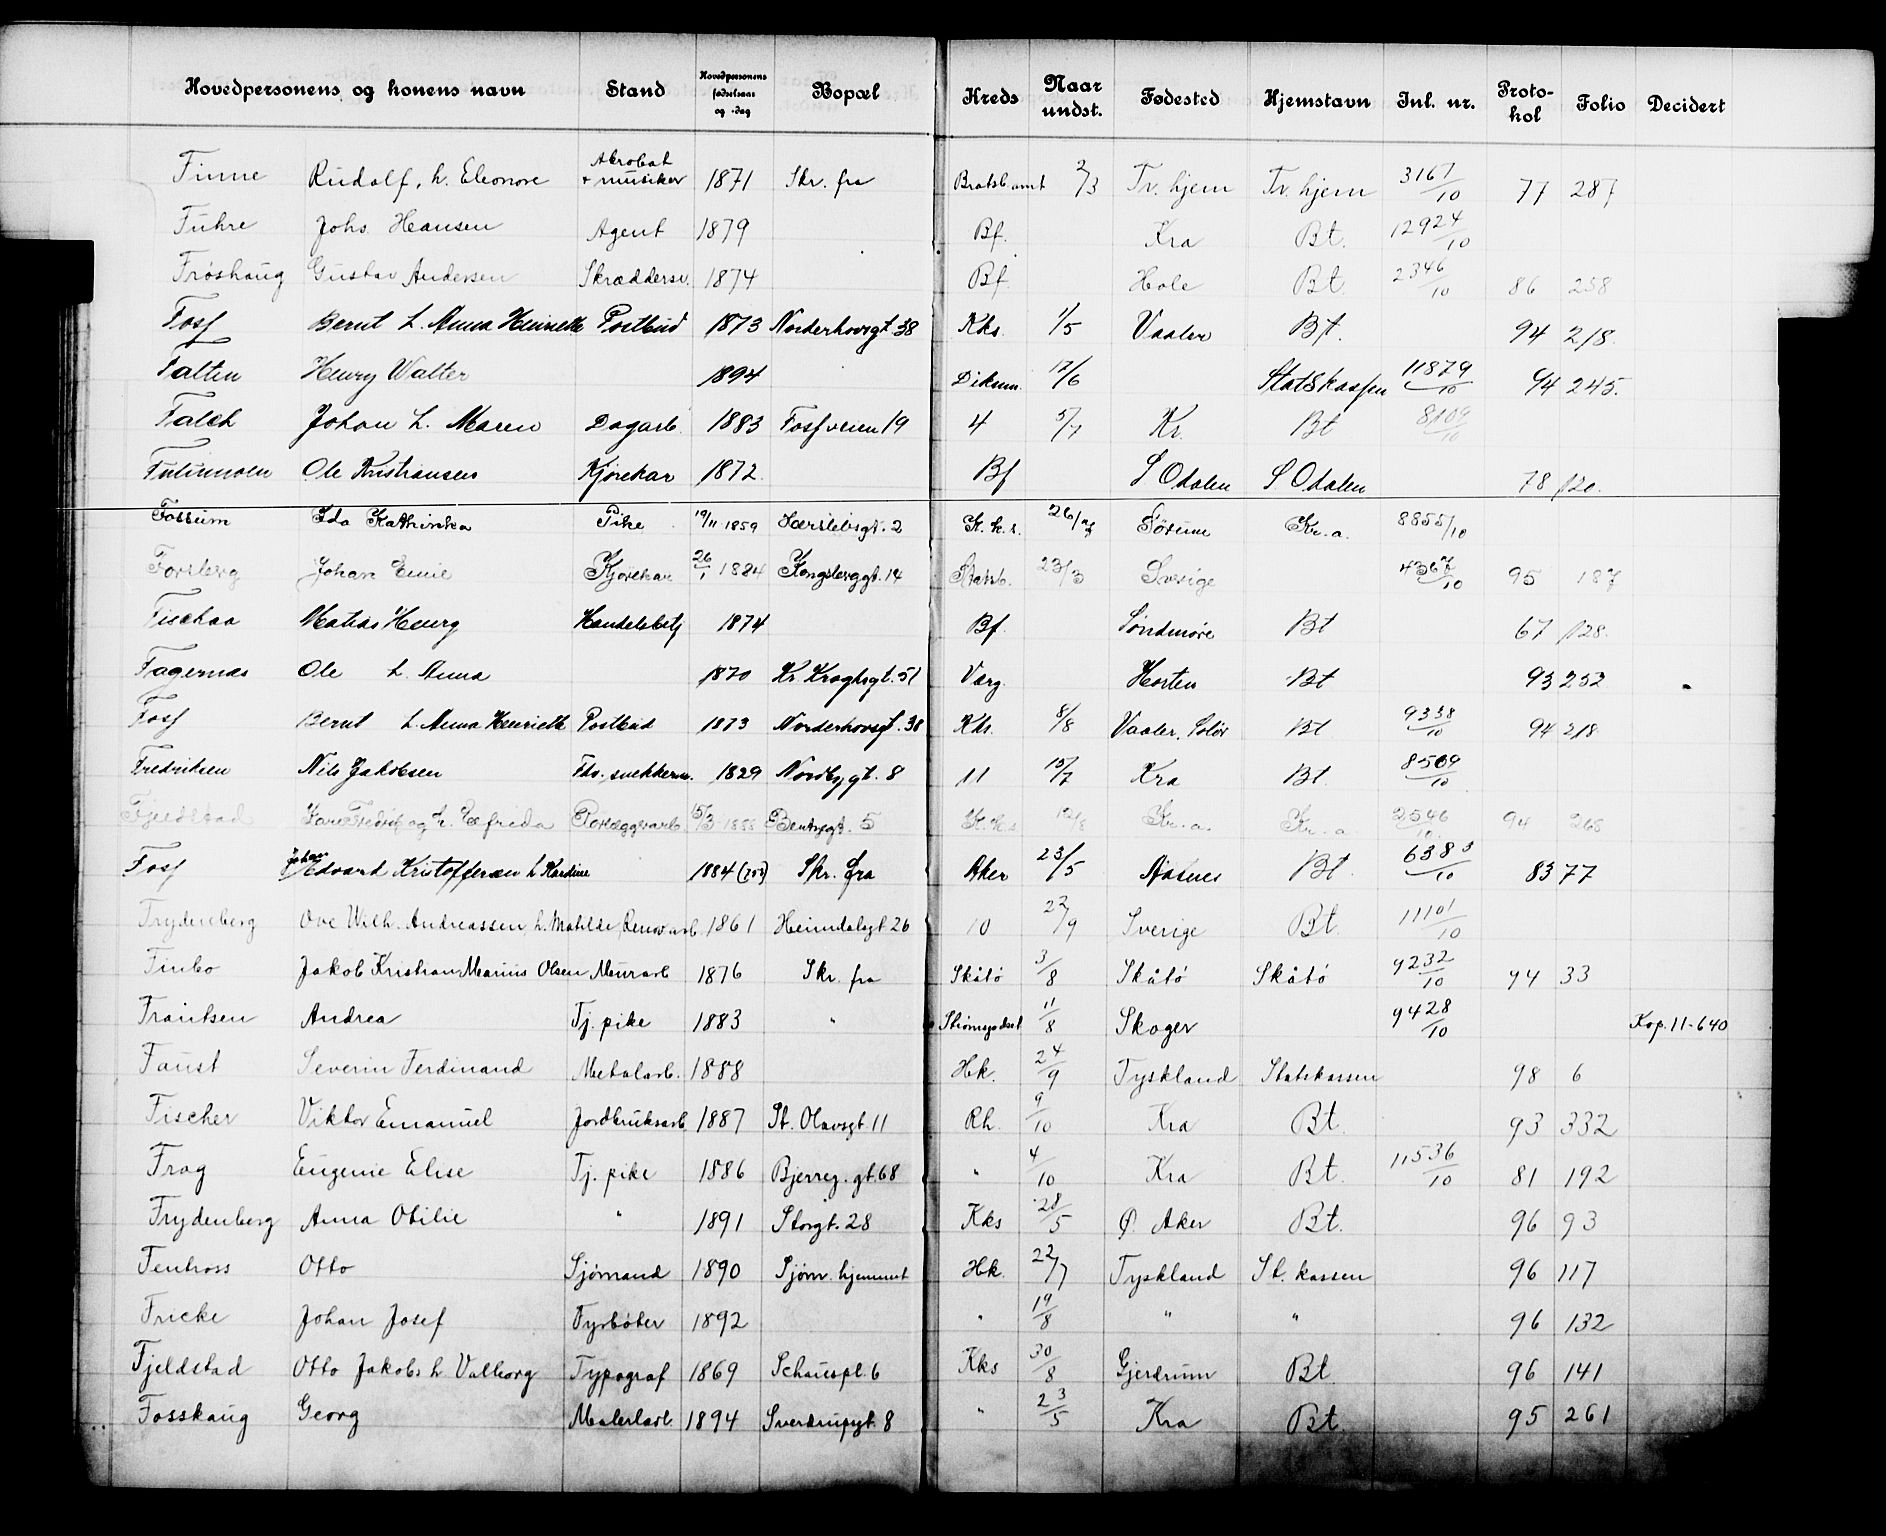 Hovedpersonens og konens navn Stand Hovedpersonens fødselsaar og -dag Bopæl Kreds Naar undst. Fødested Hjemstavn Inl. nr. Protokol Folio Decidert
Finne Rudolf, h. Eleonore Akrobat + musiker 1871 Skr. fra Bratsb. amt 2/3 Tv. hjem Tv. hjem 3167/10 77 287
Fuhre Johs. Hansen Agent 1879 Bf. Kra Bt. 12924/10
Frøshaug Gustav Andersen Skræddersv. 1874 Bf. Hole Bt. 2346/10 86 258
Foss Bernt h. Anna Henriette Postbud 1873 Norderhovsgt. 38 Kks. 1/5 Vaaler Bt. 94 218.
Falten Henry Walter 1894 Dikem. 17/6 Statskassen 11879/10 94 245.
Falch Johan h. Maren Dagarb. 1883 Fossveien 19 4 5/7 Kr. Bt 8109/10
Ole Kristiansen Kjørekar 1872. Bf S Odalen S. Odalen 78 120.
Fossum Ida Kathinka Pike 19/11 1859 Jærslebsgt. 2 K. k. s. 26/ Kr.a. 8855/10
Forsberg Johan Emil Kjørekar 26/1 1884 Kongsberggt. 14 23/3 Sverige 4367/10 95 187
Fischaa Matias Henrg Handelsbetj 1874 Bf. Søndmøre Bt 67 128.
Fagernas Ole h. Anna 1870 Kr. Kroghsgt. 51 Varg. Horten Bt 93 252
Foss Bernt h. Anna Henriette Postbud 1873 Norderhovsgt. 38 Kks. 8/8 Vaaler, Solør Bt 9338/10 94 218
Fredriksen Nils Jakobsen Fhv. snekkerm. 1829 Nordbygt. 8 11 15/7 Kra Bt 8509/10
Fjeldstad Kare Fredrik og h. Elfrida Pørlæggerarb. 15/3 1888 Bentsegt. 5 K.k.s 12/8 Kr.a. Kr.a. 2546/10. 94 268
Foss Johan Edvard Kristoffersen h Kardine 1884 Skr. fra Aker 23/5 Aasnes Bt. 6383/10 83 77
Frydenberg Ove Wilh. Andreassen, h. Matilde, Renov.arb. 1861 Heimdalsgt 26 10 22/9 Sverige Bt. 11101/10
Finbo Jakob Kristian Marius Olsen Murarb 1876 Skr. fra Skåtø 3/8 Skåtø Skåtø 9232/10 94 33
Frantsen Andrea Tj. pike 1883 " Strømsgodset 11/8 Skoger 9428/10 Kop. 11-640
Faust Severin Ferdinand Metalarb. 1888 Hk. 24/9 Tyskland Statskassen 98 6
Fischer Viktor Emanuel Jordbruksarb. 1887 St. Olavsgt 11 Rh. 9/10 Kra Bt. 93 332
Frog Eugenie Elise Tj. pike 1886 Bjerreg. gt. 68 " 4/10 Kra Bt. 11536/10 81 192
Frydenberg Anna Otilie " 1891 Storgt. 28 Kks 28/5 Ø Aker Bt. 96 93
Fentross Otto Sjømand 1890 Sjøm. hjemmet Hk. 22/7 Tyskland St. kassen 96 117
Fricke Johan Josef Fyrbøter 1892 " 19/8 " " 96 132
Fjeldstad Otto Jakobs h Valborg Typograf 1869 Schauspl. 6 Kks 30/8 Gjerdrum Bt. 96 141
Fosshaug Georg Malerlærl. 1894 Sverdrupsgt. 8 " 23/5 Kra Bt. 95 261